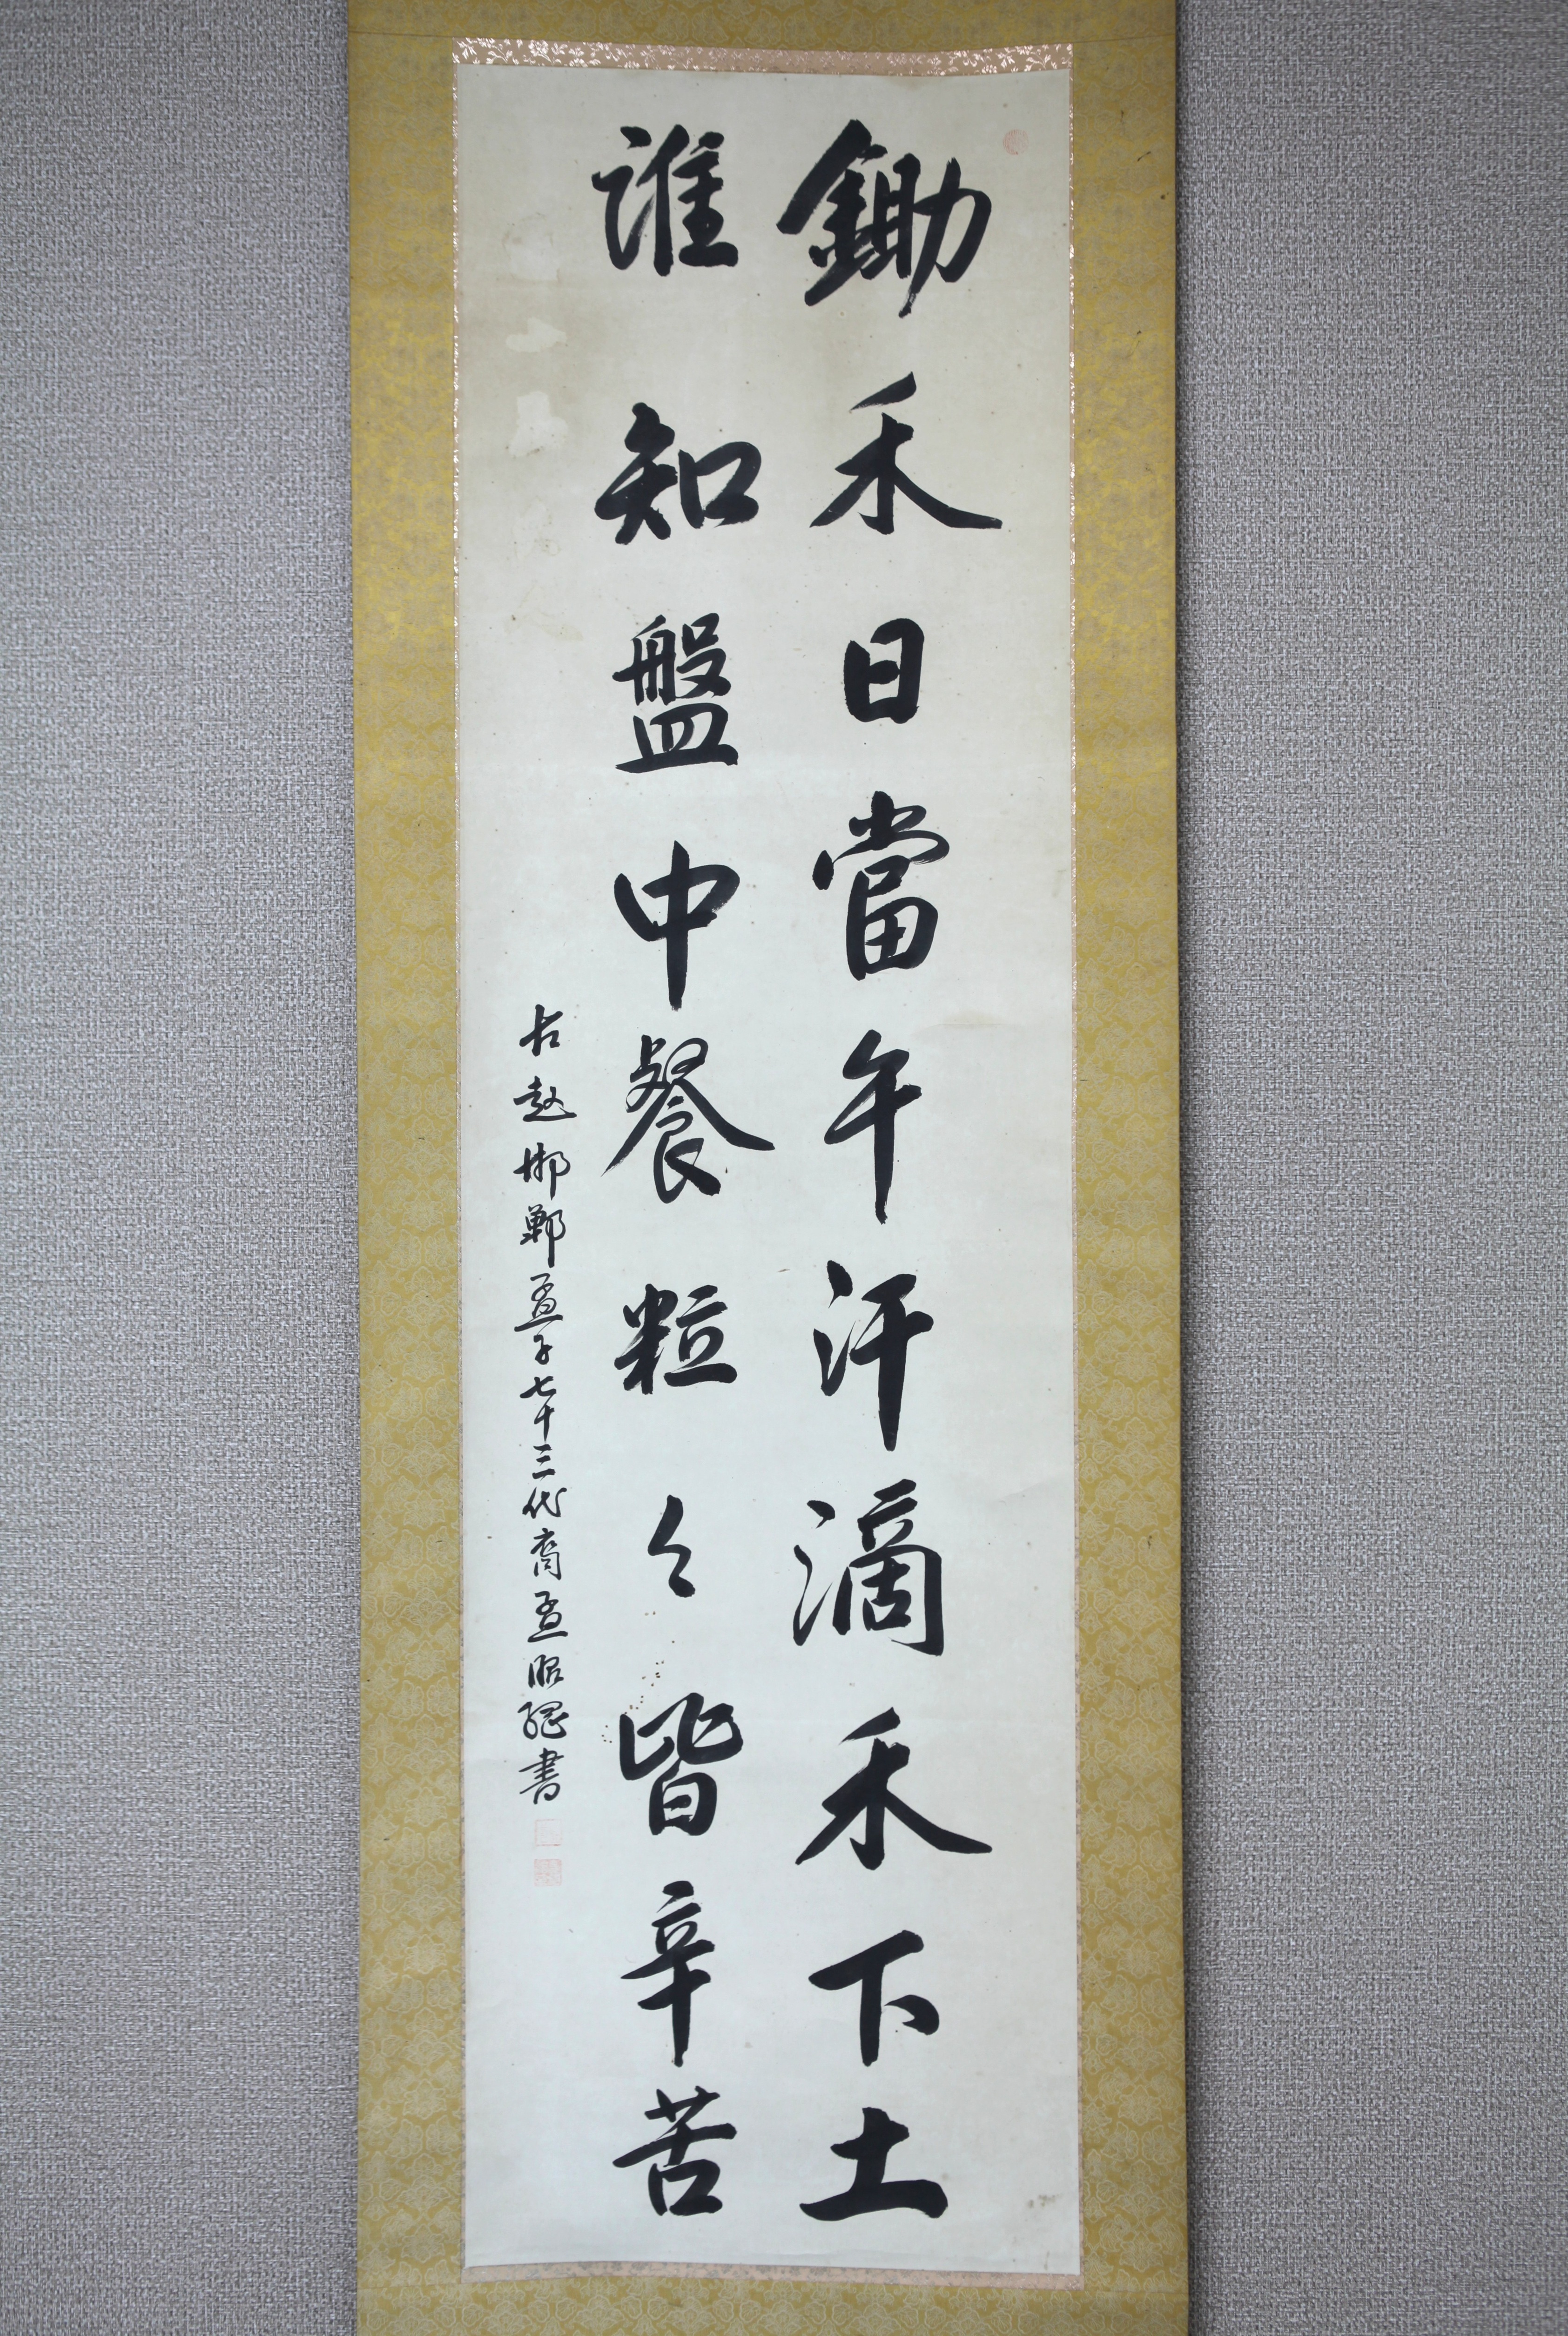 鋤禾日當午汗滴禾下土
誰知盤中餐粒々皆辛苦
古趙邯鄲孟子七十三代裔孟昭鸿書